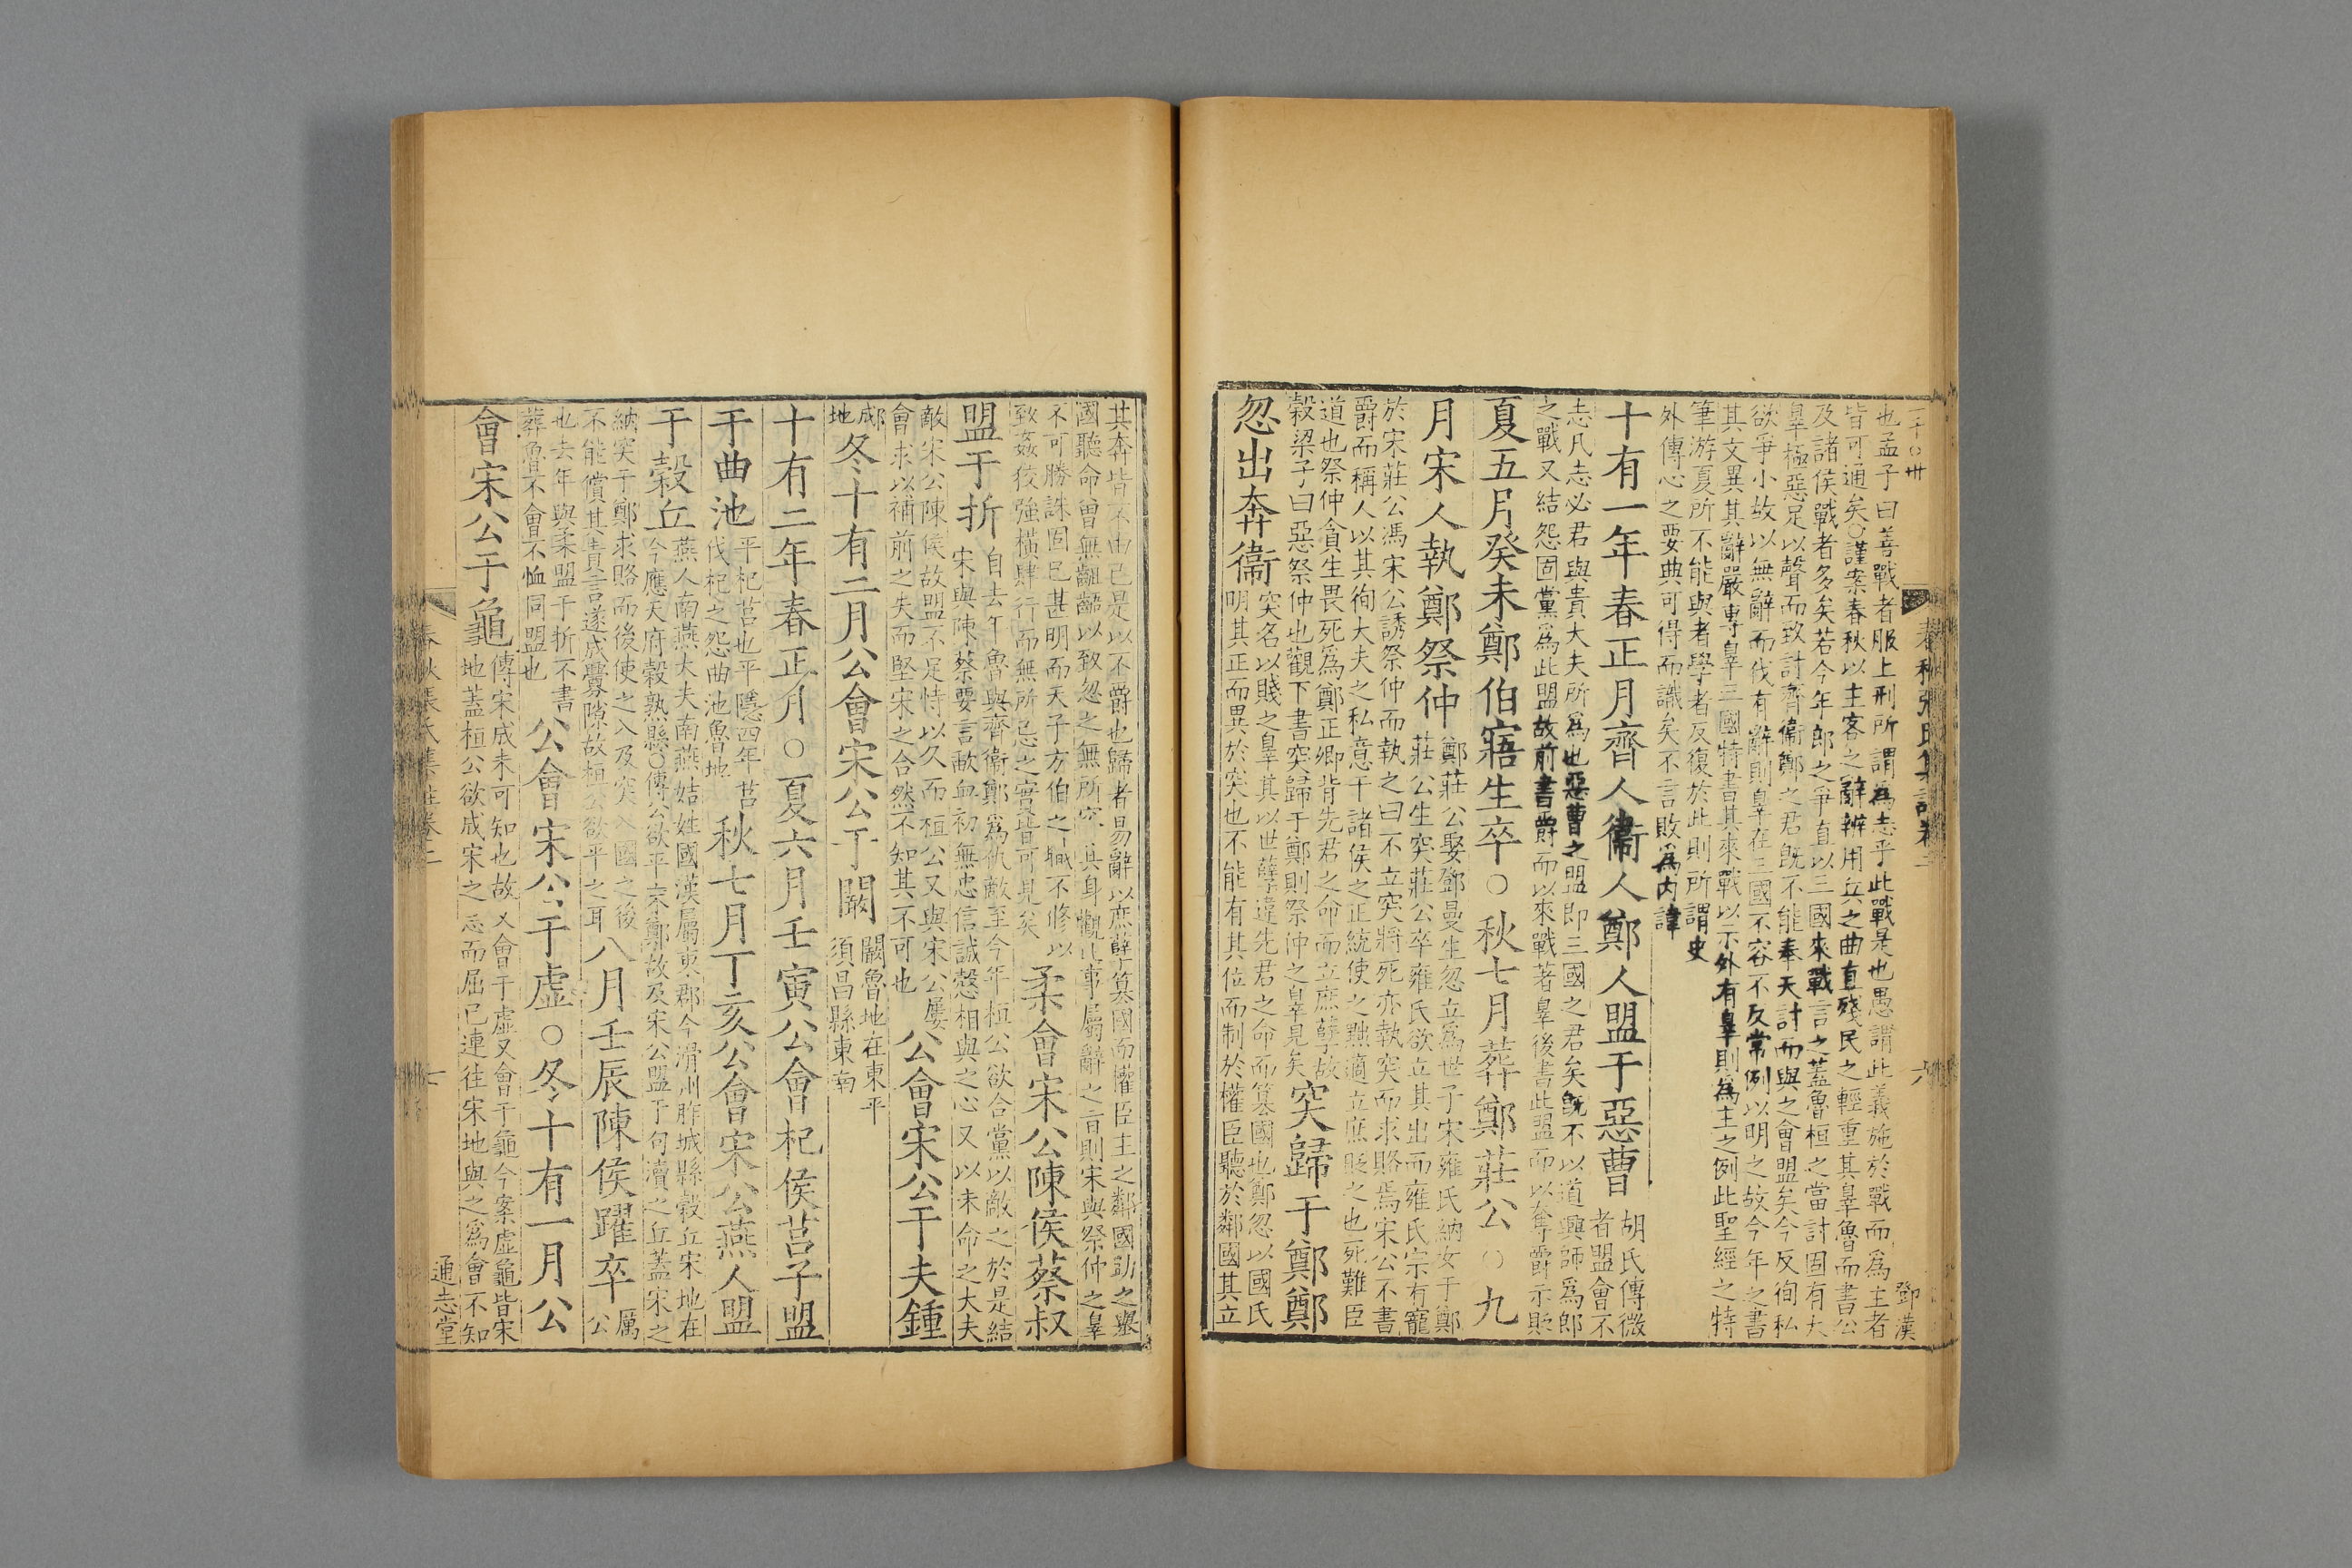 也孟子曰善戰者服上刑所謂為志乎此戰是也愚謂此義施於戰而為主者
皆可通矣○謹案春秋以主客之辭辨用兵之曲直殘民之輕重其辠魯而書公
及諸侯戰者多矣若今年郎之爭直以三國來戰言之蓋魯桓之當討固有大
辠極惡足以聲而致討齊衞鄭之君既不能奉天討而與之會盟矣今反徇私
欲爭小故以無辭而伐有辭則辠在三國不容不反常例以明之故今年之書
其文異其辭嚴專辠三國特書其來戰以示外有辠則為主之例此聖經之特
筆游夏所不能與者學者反復於此則所謂史
外傳心之要典可得而識矣不言敗為內諱
十有一年春正月齊人衞人鄭人盟于惡曹
胡氏傳微者盟會不
志凡志必君與貴大夫所為也惡曹之盟即三國之君矣既不以道興師為郎
之戰又結怨固黨為此盟故前書爵而以來戰著辠後書此盟而以奪爵示貶
夏五月癸未鄭伯寤生卒○秋七月葬鄭莊公○九
月宋人執鄭祭仲
鄭莊公娶鄧曼生忽立為世子宋雍氏納女于鄭
莊公生突莊公卒雍氏欲立其出而雍氏宗有寵
於宋莊公馮宋公誘祭仲而執之曰不立突將死亦執突而求賂焉宋公不書
爵而稱人以其徇大夫之私意干諸侯之正統使之黜適立庶貶之也死難臣
道也祭仲貪生畏死為鄭正卿背先君之命而立庶孽故
穀梁子曰惡祭仲也觀下書突歸于鄭則祭仲之辠見矣
突歸于鄭鄭
忽出奔衞
突名以賤之辠其以世孽違先君之命而篡國也鄭忽以國氏
明其正而異於突也不能有其位而制於權臣聽於鄰國其立
春秋張氏集註卷二
六
鄧漢
其奔皆不由己是以不爵也歸者易辭以庶孽篡國而權臣主之鄰國助之舉
國聽命曾無齟齬以致忽之無所容其身觀此事屬辭之旨則宋與祭仲之辠
不可勝誅固已甚明而天子方伯之職不修以
致姦狡強橫肆行而無所忌之害皆可見矣
柔會宋公陳侯蔡叔
盟于折
自去年魯與齊衞鄭為仇敵至今年桓公欲合黨以敵之於是結
宋與陳蔡要言歃血初無忠信誠愨相與之心又以未命之大夫
敵宋公陳侯故盟不足恃以久而桓公又與宋公屢
會求以補前之失而堅宋之合然不知其不可也
公會宋公于夫鍾
郕
地
冬十有二月公會宋公于闞
闞魯地在東平
須昌縣東南
十有二年春正月○夏六月壬寅公會杞侯莒子盟
于曲池
平杞莒也平隱四年莒
伐杞之怨曲池魯地
秋七月丁亥公會宋公燕人盟
于穀丘
燕人南燕大夫南燕姞姓國漢屬東郡今滑州胙城縣穀丘宋地在
今應天府穀熟縣○傳公欲平宋鄭故及宋公盟于句瀆之丘蓋宋之
納突于鄭求賂而後使之入及突入國之後
不能償其責言遂成釁隙故桓公欲平之耳
八月壬辰陳侯躍卒
厲
公
也去年與柔盟于折不書
葬魯不會不恤同盟也
公會宋公于虛○冬十有一月公
會宋公于龜
傳宋成未可知也故又會于虛又會于龜今案虛龜皆宋
地蓋桓公欲成宋之志而屈己連往宋地與之為會不知
春秋張氏集註卷二
七
通志堂